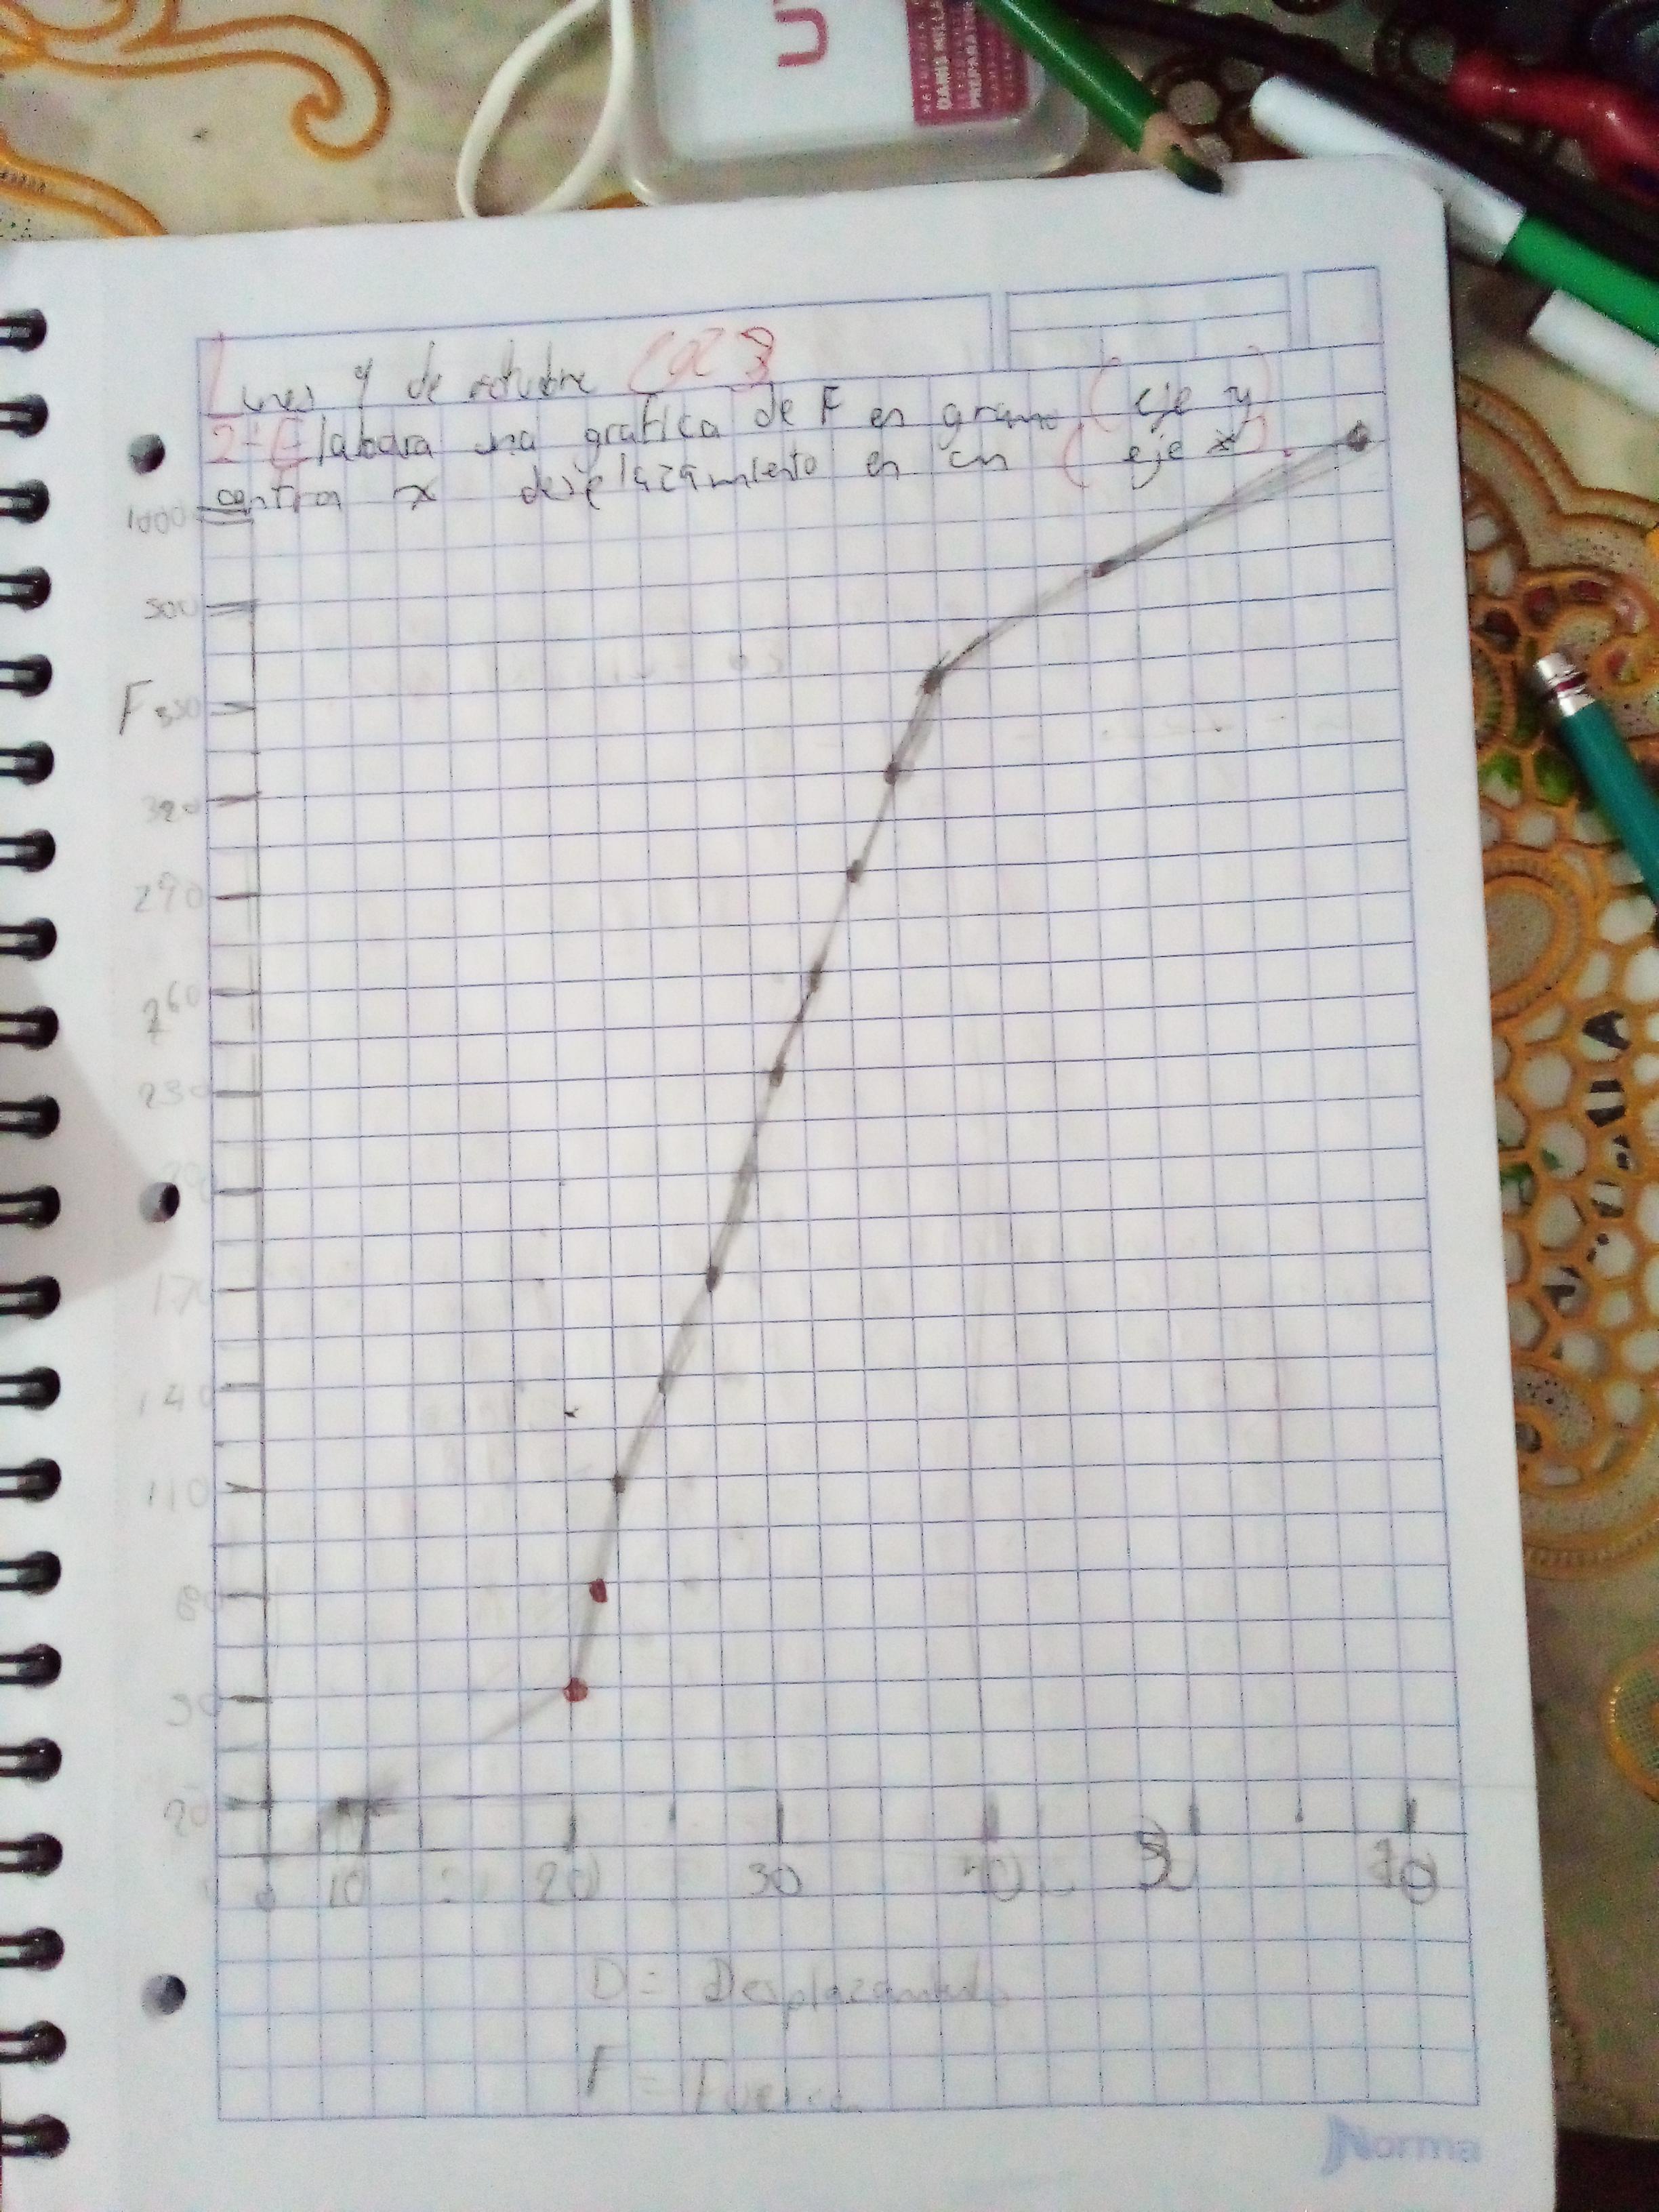 U
DAMS MILLA
PREPARATO
Lunes 9 de octubre 2023
2- Elabora una grafica de F en gramo (eje y)
contra x desplazamiento en cm (eje x).
1000
500
F 350
320
290
260
230
170
140
110
80
50
20
0 10 20 30 40
D = Desplazamiento
F = Fuerza
Norma